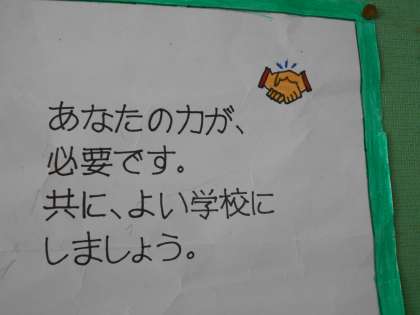 あなたの力が、
必要です。
共に、よい学校に
しましょう。